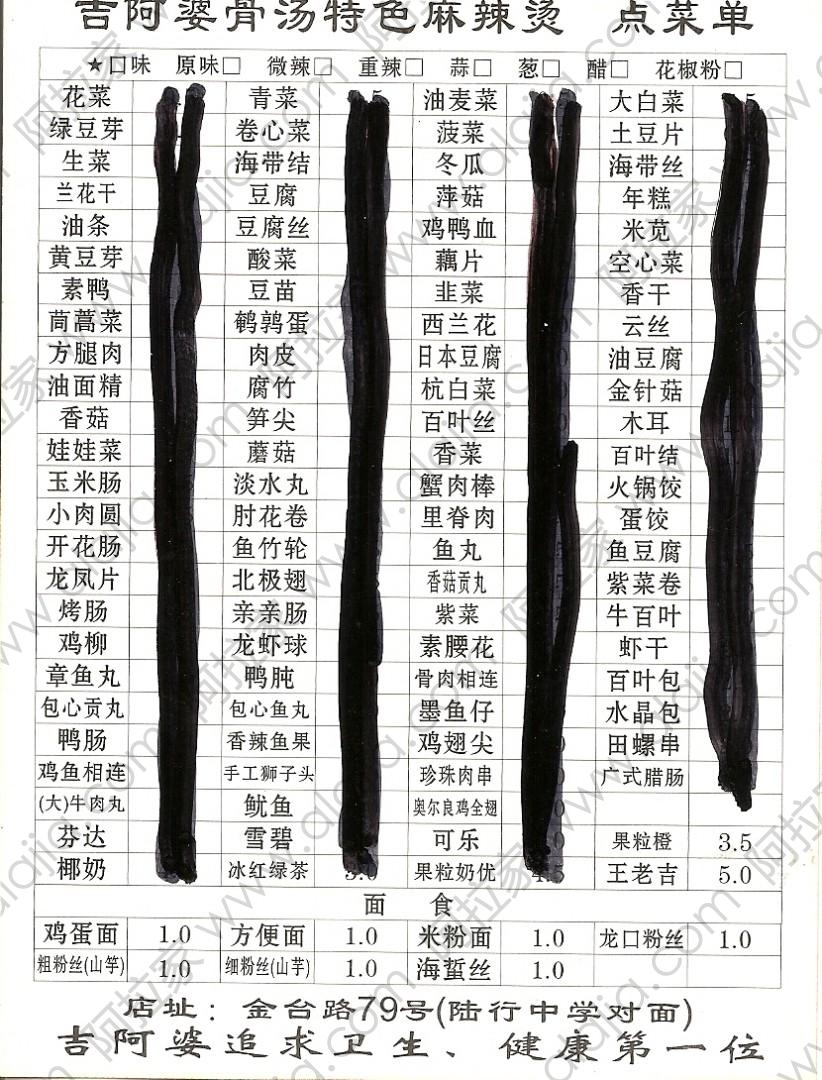 吉阿婆骨汤特色麻辣烫 点菜单
★口味 原味□ 微辣□ 重辣□ 蒜□ 葱□ 醋□ 花椒粉□
花菜 青菜 油麦菜 大白菜
绿豆芽 卷心菜 菠菜 土豆片
生菜 海带结 冬瓜 海带丝
兰花干 豆腐 萍菇 年糕
油条 豆腐丝 鸡鸭血 米苋
黄豆芽 酸菜 藕片 空心菜
素鸭 豆苗 韭菜 香干
茼蒿菜 鹌鹑蛋 西兰花 云丝
方腿肉 肉皮 日本豆腐 油豆腐
油面精 腐竹 杭白菜 金针菇
香菇 笋尖 百叶丝 木耳
娃娃菜 蘑菇 香菜 百叶结
玉米肠 淡水丸 蟹肉棒 火锅饺
小肉圆 肘花卷 里脊肉 蛋饺
开花肠 鱼竹轮 鱼丸 鱼豆腐
龙凤片 北极翅 香菇贡丸 紫菜卷
烤肠 亲亲肠 紫菜 牛百叶
鸡柳 龙虾球 素腰花 虾干
章鱼丸 鸭肫 骨肉相连 百叶包
包心贡丸 包心鱼丸 墨鱼仔 水晶包
鸭肠 香辣鱼果 鸡翅尖 田螺串
鸡鱼相连 手工狮子头 珍珠肉串 广式腊肠
(大)牛肉丸 鱿鱼 奥尔良鸡全翅
芬达 雪碧 可乐 果粒橙 3.5
椰奶 冰红绿茶 果粒奶优 王老吉 5.0
面 食
鸡蛋面 1.0 方便面 1.0 米粉面 1.0 龙口粉丝 1.0
粗粉丝(山芋) 1.0 细粉丝(山芋) 1.0 海蜇丝 1.0
店址：金台路79号(陆行中学对面)
吉阿婆追求卫生、健康第一位
阿拉家 www.alajia.com